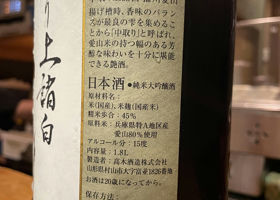 り上諸白
揚げ槽時、香味のバラン
スが最良の雫を集めるこ
とから「中取り」と呼ばれ、
愛山米の持つ幅のある芳
醇な味わいを十分に堪能
できる艶酒。
日本酒●純米大吟醸酒
原材料名:
米(国産)、米麹(国産米)
精米歩合:45%
原料米:兵庫県特A地区産
愛山80%使用
アルコール分:15度
内容量:1.8L
製造者:高木酒造株式会社
山形県村山市大字富並1826番地
お酒は20歳になってから。
保存方法: